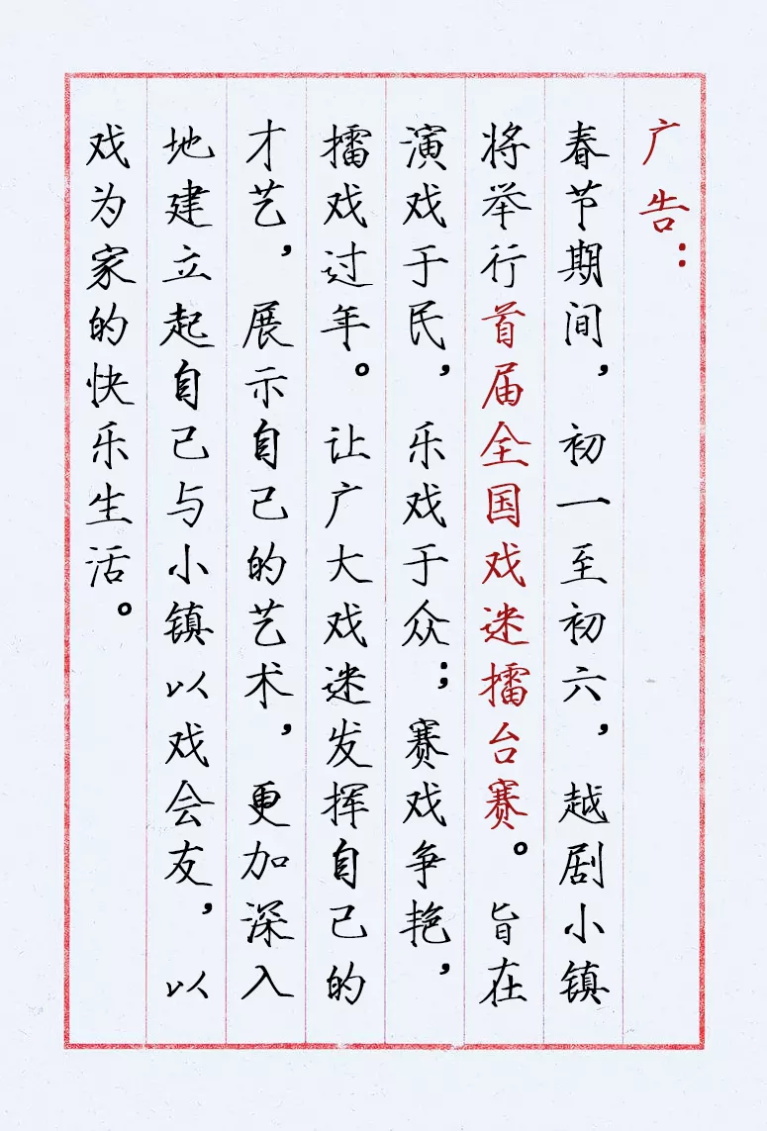 广告：
春节期间，初一至初六，越剧小镇
将举行首届全国戏迷擂台赛。旨在
演戏于民，乐戏于众；赛戏争艳，
擂戏过年。让广大戏迷发挥自己的
才艺，展示自己的艺术，更加深入
地建立起自己与小镇以戏会友，以
戏为家的快乐生活。